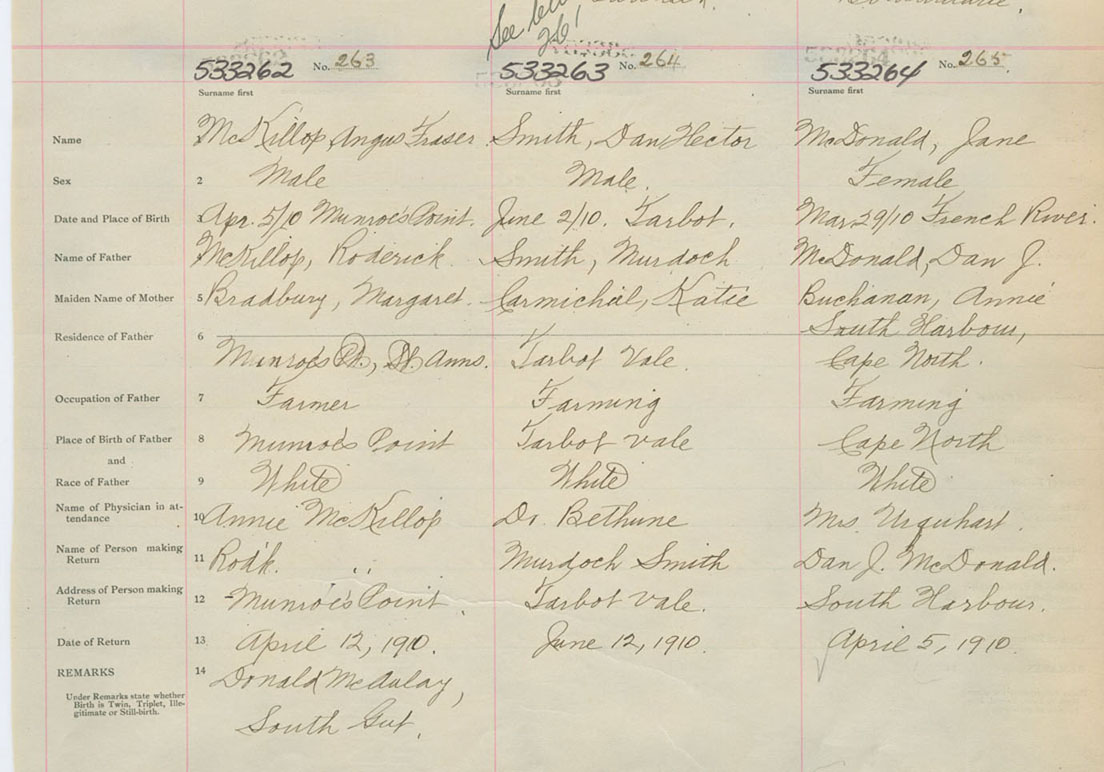 See
261
533262 No. 263 533263 No. 264 533264 No. 265
Surname first Surname first Surname first
Name 1 McKillop, Angus Fraser Smith, Dan Hector McDonald, Jane
Sex 2 Male Male. Female
Date and Place of Birth 3 Apr. 5/10 Munroe's Point. June 2/10. Tarbot. Mar 29/10 French River.
Name of Father 4 McKillop, Roderick. Smith, Murdoch McDonald, Dan J.
Maiden Name of Mother 5 Bradbury, Margaret. Carmichal, Katie Buchanan, Annie
South Harbour,
Residence of Father 6 Munroe's Pt., St. Anns. Tarbot Vale. Cape North.
Occupation of Father 7 Farmer Farming Farming
Place of Birth of Father 8 Munroe's Point Tarbot vale Cape North
and
Race of Father 9 White White White
Name of Physician in at-
tendance 10 Annie McKillop Dr. Bethune Mrs Urquhart.
Name of Person making
Return 11 Rod'k. " Murdoch Smith Dan J. McDonald.
Address of Person making
Return 12 Munroe's Point. Tarbot Vale. South Harbour.
Date of Return 13 April 12, 1910. June 12, 1910. April 5, 1910.
REMARKS 14 Donald McAulay,
Under Remarks state whether
Birth is Twin, Triplet, Ille-
gitimate or Still-birth.
South Gut.